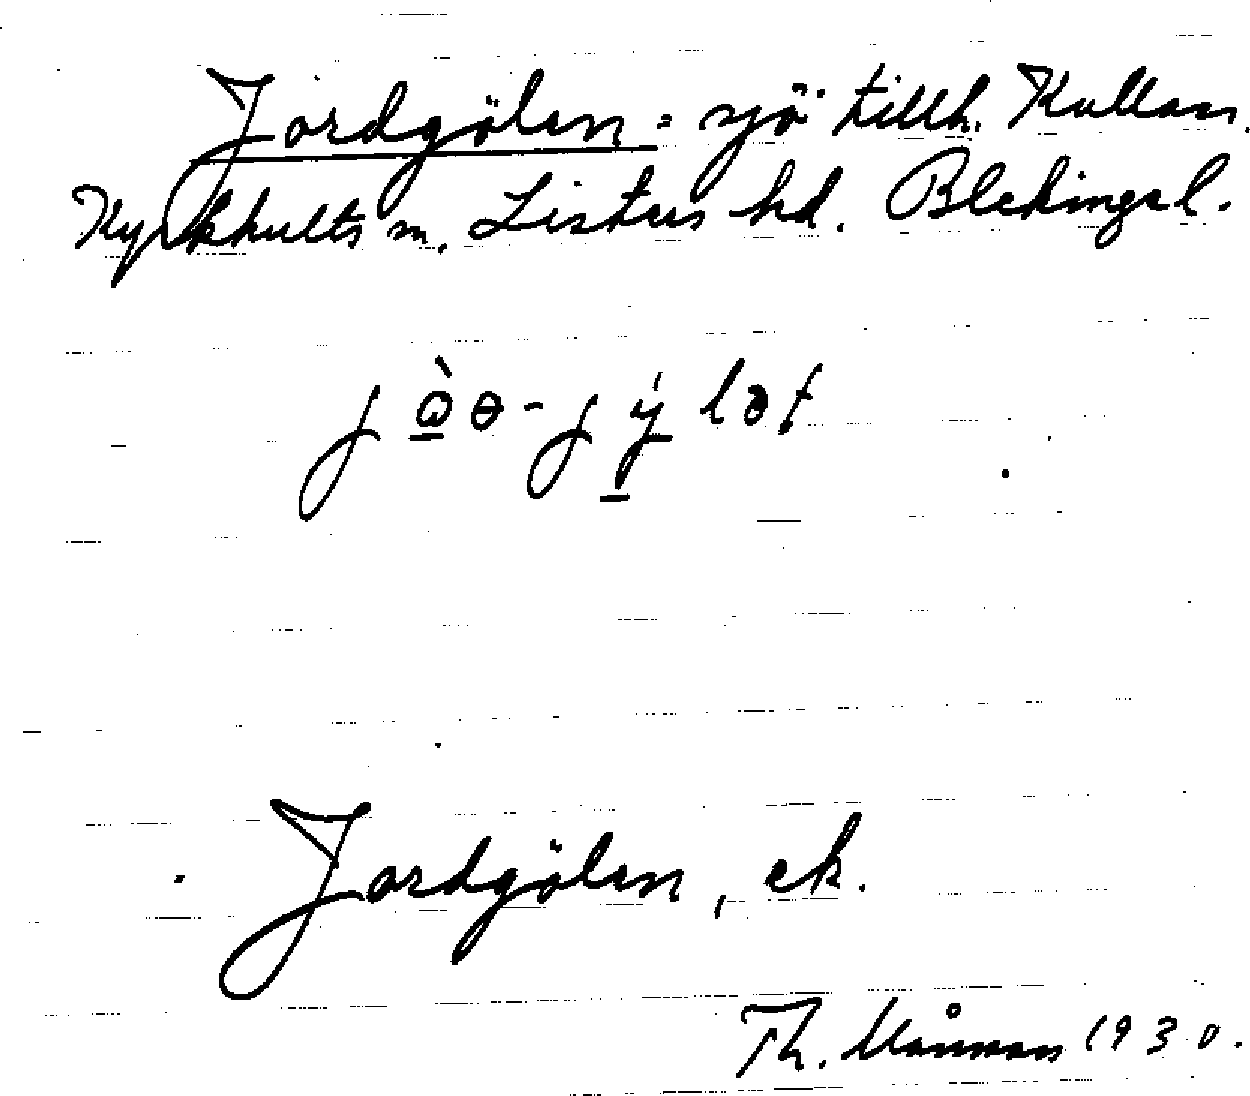 Jordgölen = sjö tillh. Kullan.
Kyrkhults sn. Listers hd. Blekinge l.
Jordgölen, ek.
Th. Månsson 1930.